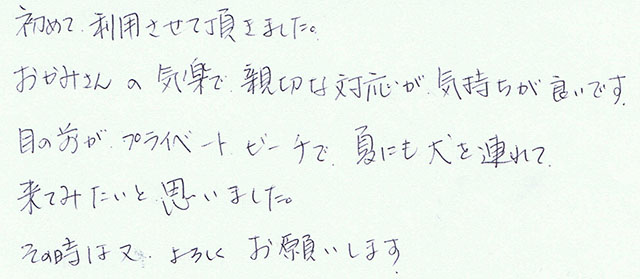 初めて、利用させて頂きました。
おかみさんの気楽で、親切な対応が、気持ちが良いです。
目の前が、プライベート、ビーチで、夏にも犬を連れて、
来てみたいと思いました。
その時は又、よろしくお願いします